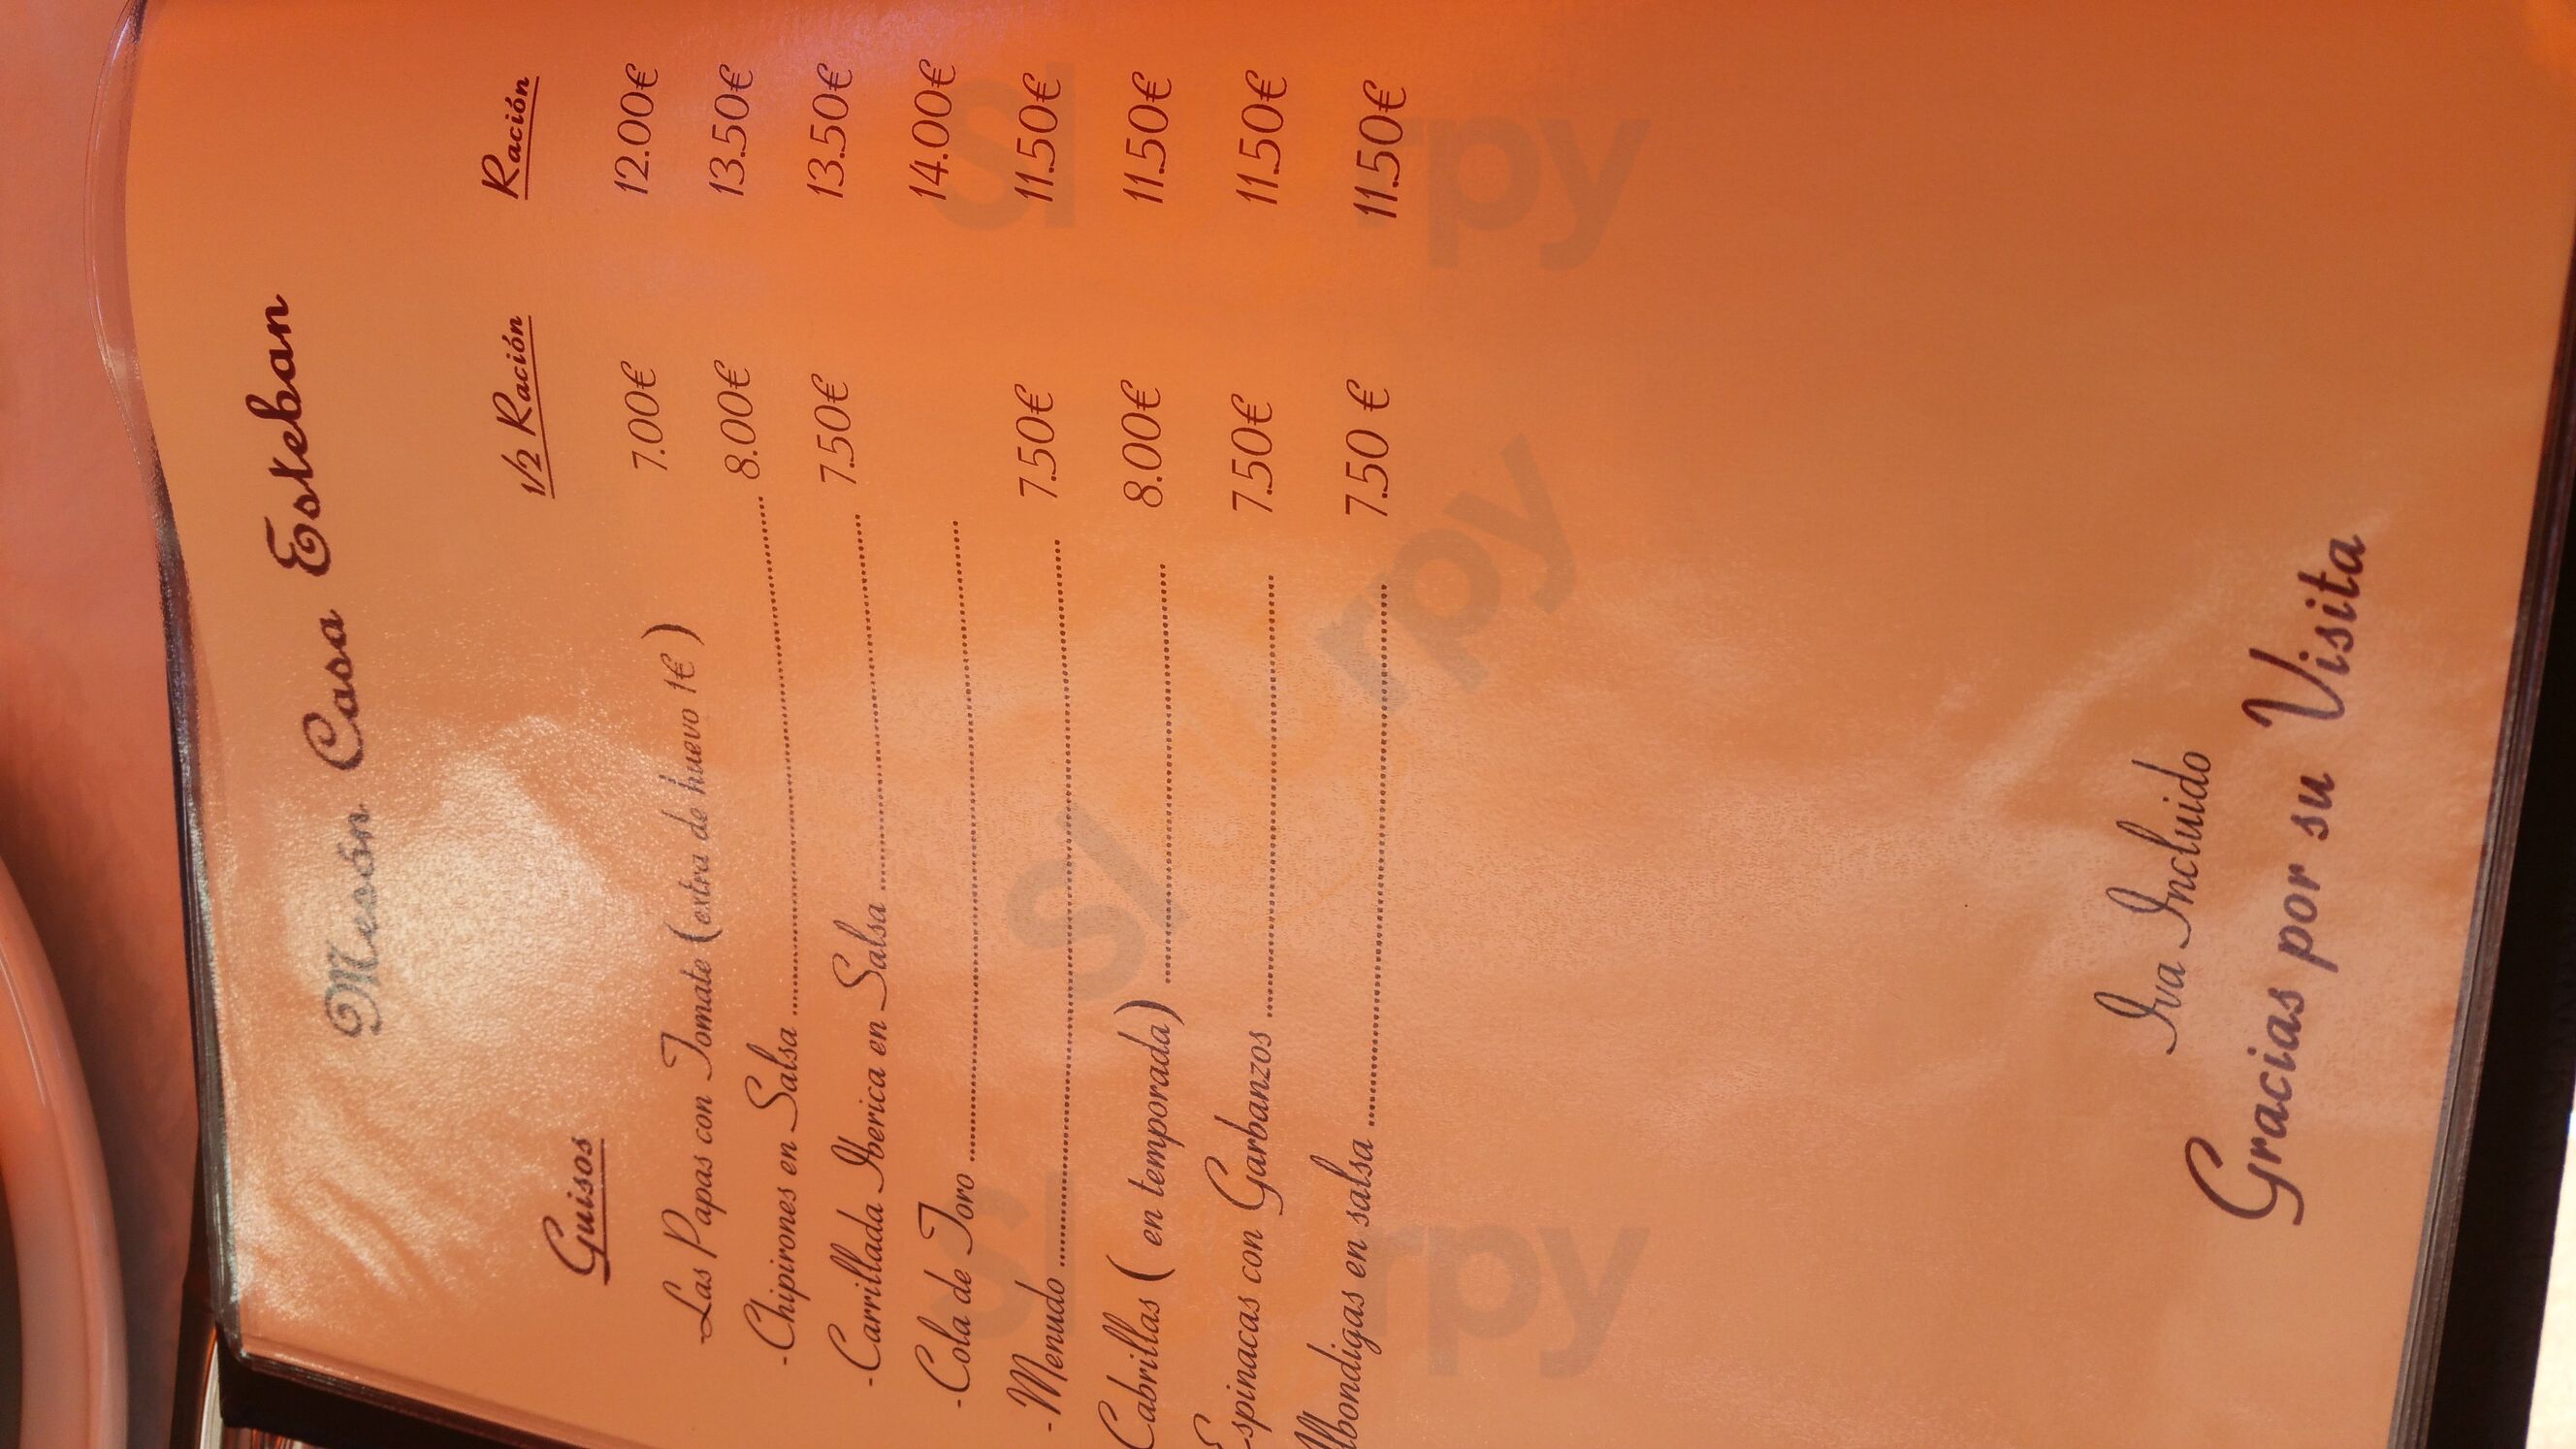 Mesón Casa Esteban
Guisos 1/2 Ración Ración
-Las Papas con Tomate (extra de huevo 1€) 7.00€ 12.00€
-Chipirones en Salsa 8.00€ 13.50€
-Carrillada Iberica en Salsa 7.50€ 13.50€
-Cola de Toro 14.00€
-Menudo 7.50€ 11.50€
Cabrillas ( en temporada) 8.00€ 11.50€
Espinacas con Garbanzos 7.50€ 11.50€
Albondigas en salsa 7.50 € 11.50€
Iva Incluido
Gracias por su Visita